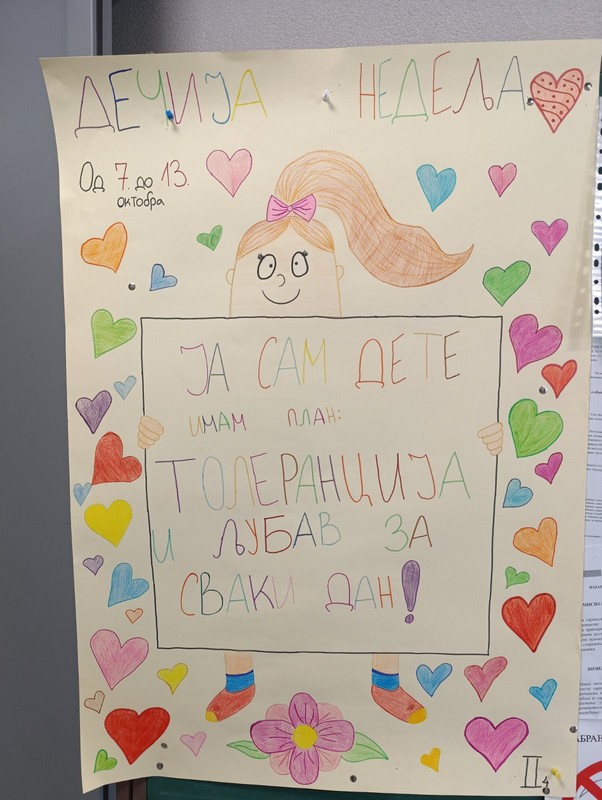 ДЕЧИЈА НЕДЕЉА
Од 7. до 13.
октобра
ЈА САМ ДЕТЕ
ИМАМ ПЛАН:
ТОЛЕРАНЦИЈА
И ЉУБАВ ЗА
СВАКИ ДАН!
II4